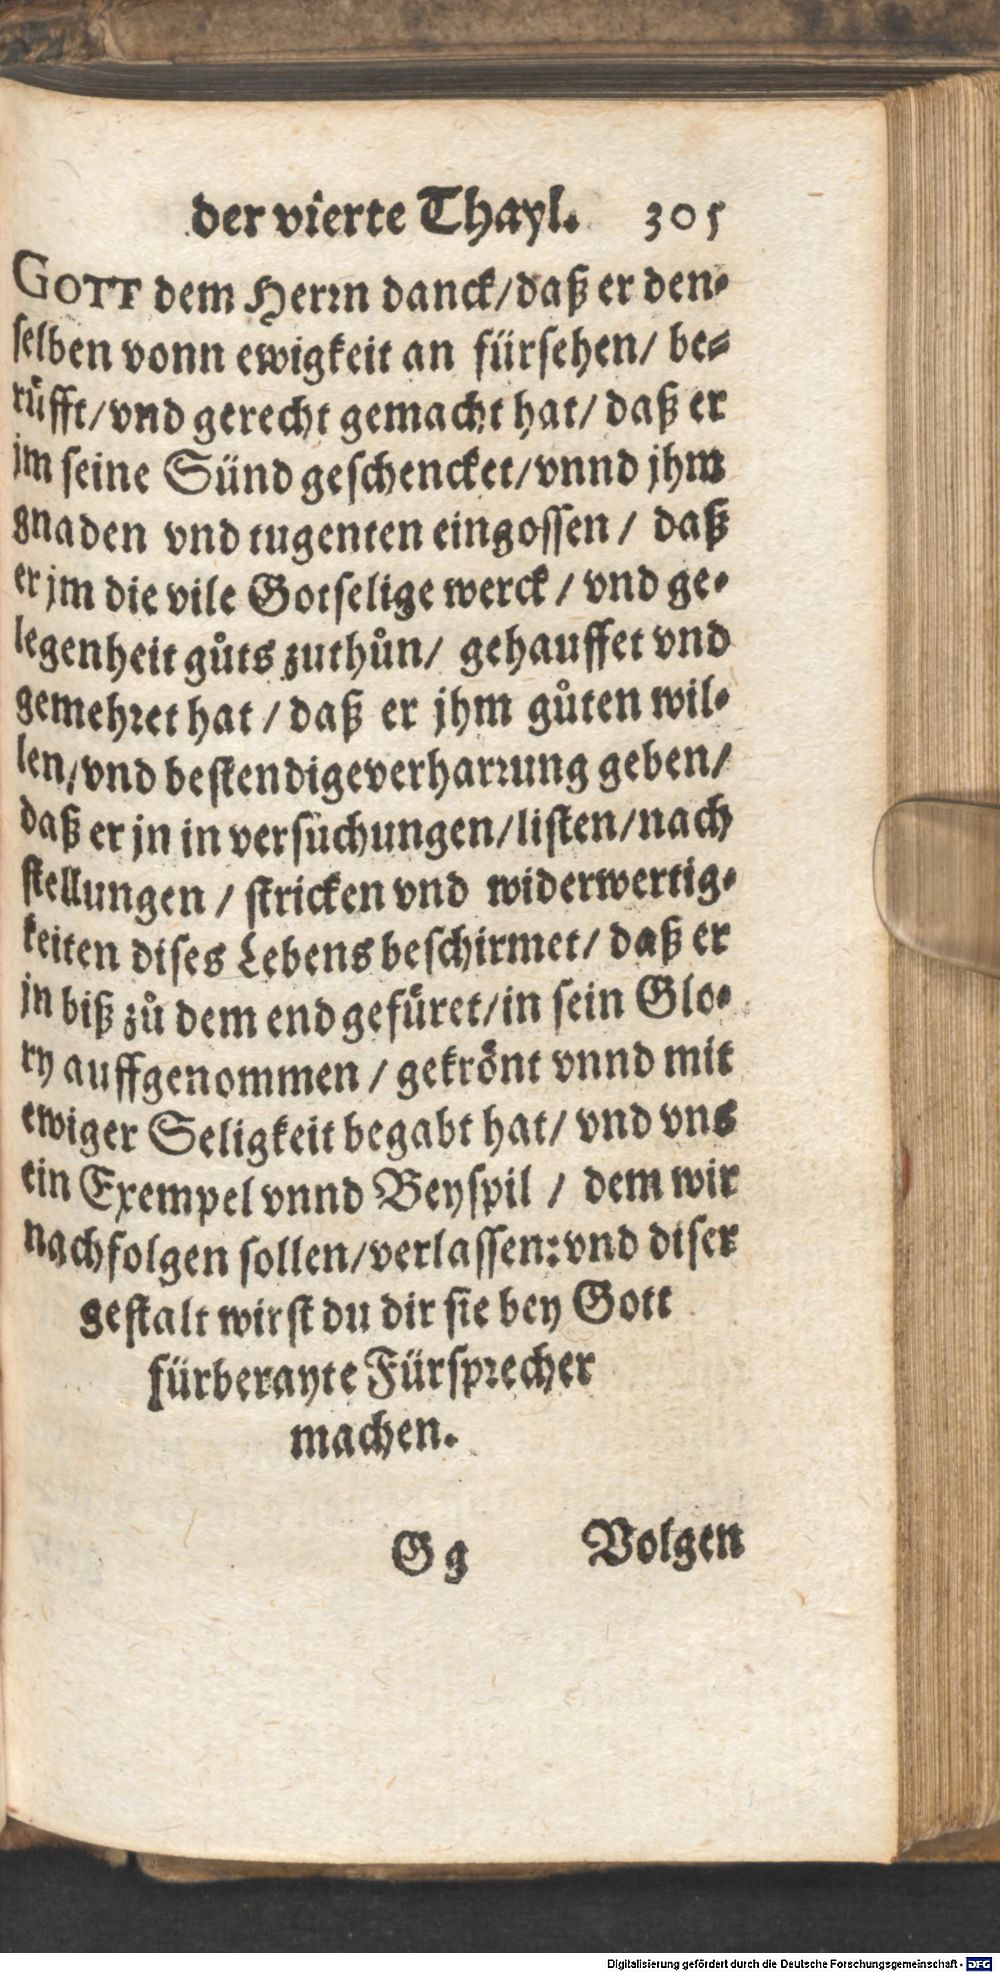 der vierte Thayl. 305
GOTT dem Herrn danck/daß er den-
selben vonn ewigkeit an fürsehen/ be-
rüfft/vnd gerecht gemacht hat/ daß er
jm seine Sünd geschencket/vnnd jhm
gnaden vnd tugenten eingossen / daß
er jm die vile Gotselige werck / vnd ge-
legenheit gůts zuthůn/ gehauffet vnd
gemehret hat / daß er jhm gůten wil-
len/vnd bestendigeverharrung geben/
daß er jn in versuchungen/listen/nach
stellungen / stricken vnd widerwertig-
keiten dises Lebens beschirmet/ daß er
jn biß zů dem end gefüret/in sein Glo-
ry auffgenommen / gekrönt vnnd mit
ewiger Seligkeit begabt hat/ vnd vns
ein Exempel vnnd Beyspil / dem wir
nachfolgen sollen/verlassen:vnd diser
gestalt wirst du dir sie bey Gott
fürberayte Fürsprecher
machen.
Gg Volgen
Digitalisierung gefördert durch die Deutsche Forschungsgemeinschaft - DFG